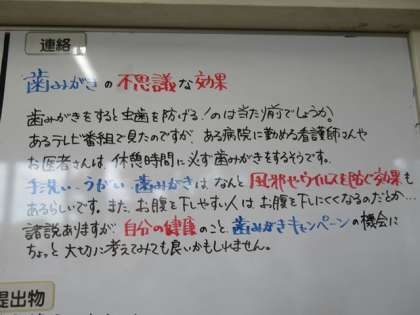 連絡
歯みがきの不思議な効果
歯みがきをすると虫歯を防げる!のは当たり前でしょうか。
あるテレビ番組で見たのですが、ある病院に勤める看護師さんや
お医者さんは、休憩時間に必ず歯みがきをするそうです。
手洗い・うがい・歯みがきは、なんと風邪やウイルスを防ぐ効果も
あるらしいです。また、お腹を下しやすい人は、お腹を下しにくくなるのだとか…
諸説ありますが、自分の健康のこと、歯みがきキャンペーンの機会に
ちょっと大切に考えてみても良いかもしれません。
提出物